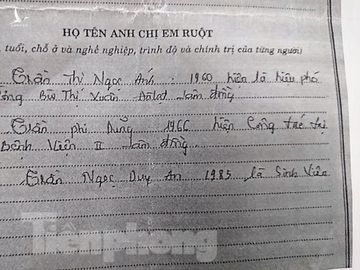 HỌ TÊN ANH CHỊ EM RUỘT
tuổi, chỗ ở và nghề nghiệp, trình độ và chính trị của từng người)
Trần Thị Ngọc Ánh : 1960 hiện là hiệu phó
Bùi Thị Xuân Đalat Lâm Đồng
Trần Phi Dũng 1966 hiện Công tác tại
Bệnh Viện II Lâm Đồng
Trần Ngọc Duy An 1985 là Sinh Viên
Tiền phong